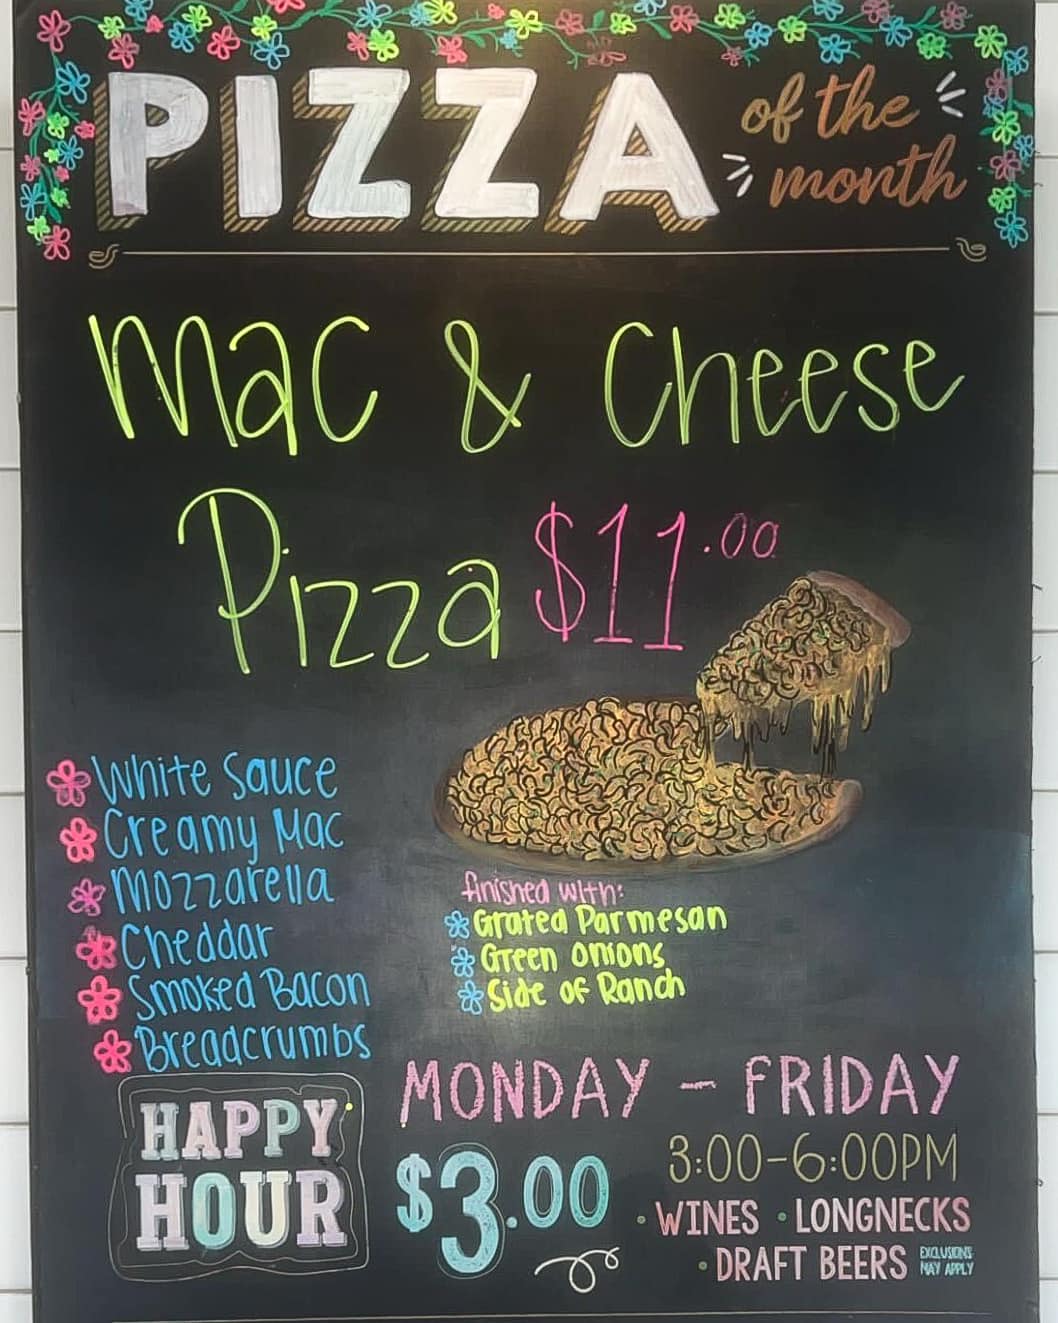 PIZZA of the month
Mac & Cheese
Pizza $11.00
White Sauce
Creamy Mac
Mozzarella
Cheddar
Smoked Bacon
Breadcrumbs
finished with:
Grated Parmesan
Green onions
Side of Ranch
HAPPY
HOUR
MONDAY - FRIDAY
$3.00
3:00-6:00PM
• WINES • LONGNECKS
• DRAFT BEERS
EXCLUSIONS
MAY APPLY